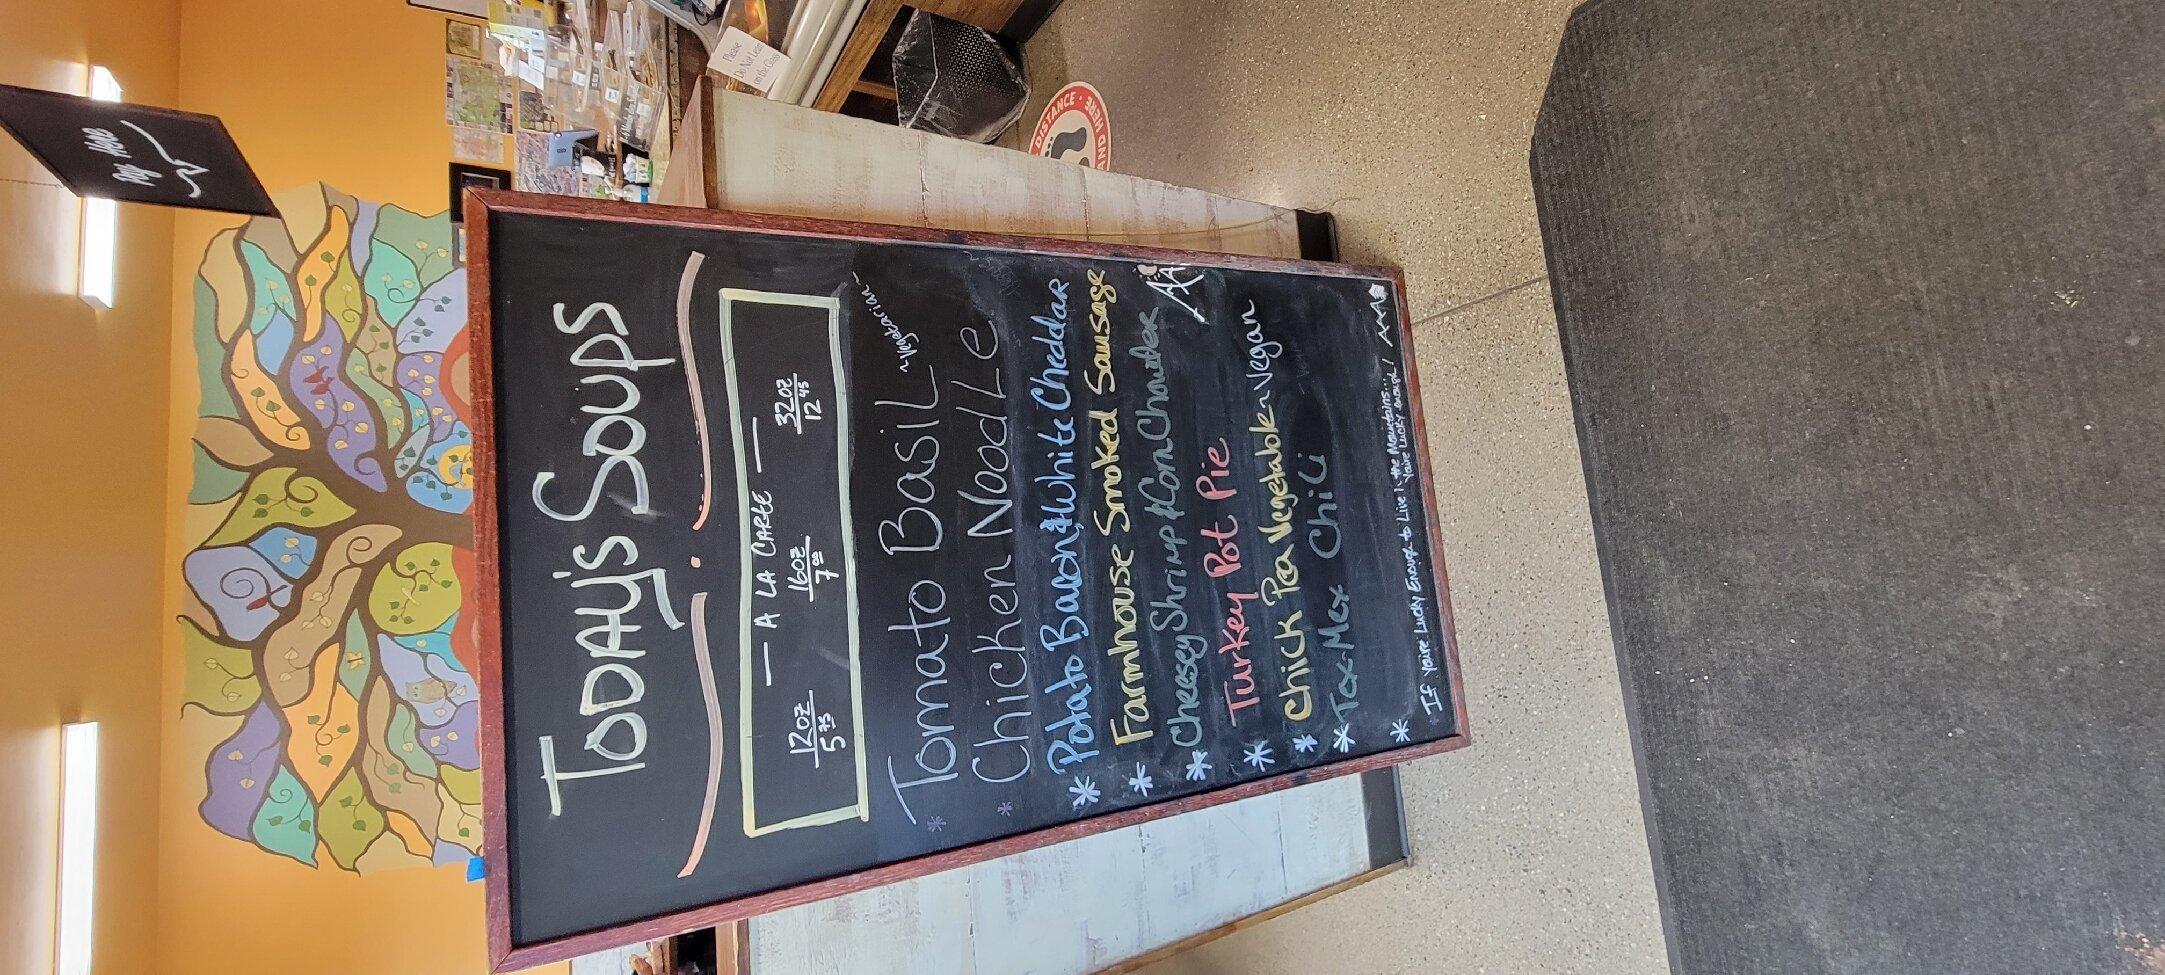 Today's Soups
A La Carte
12oz 16oz 32oz
5.75 7.00 12.45
Tomato Basil ~Vegetarian~
Chicken Noodle
Potato Bacon & White Cheddar
Farmhouse Smoked Sausage
Cheesey Shrimp & Corn Chowder
Turkey Pot Pie
Chick Pea Vegetable ~ Vegan
Tex-Mex Chili
If You're Lucky Enough to Live in the Mountains...
You're Lucky Enough!
Pay Here
Please
Do Not Lean
on the Glass
DISTANCE
AND HERE